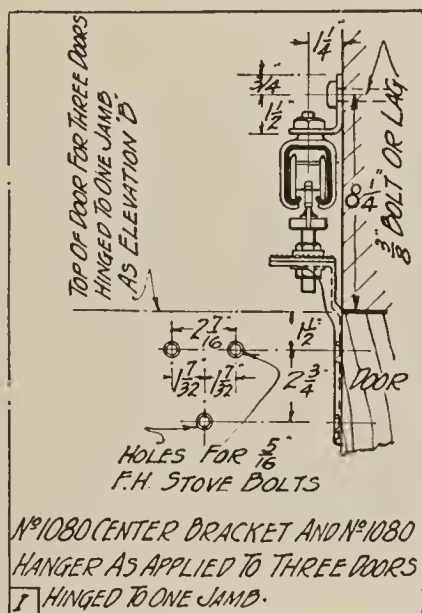 1 1/4"
3/4"
1 1/2"
TOP OF DOOR FOR THREE DOORS
HINGED TO ONE JAMB.
AS ELEVATION 'B'
8 1/4"
3/8" BOLT OR LAG
2 7/16
1 1/2"
1 7/32
1 7/32
2 3/4"
DOOR
HOLES FOR 5/16"
F.H. STOVE BOLTS
Nº1080 CENTER BRACKET AND Nº1080
HANGER AS APPLIED TO THREE DOORS
I HINGED TO ONE JAMB.